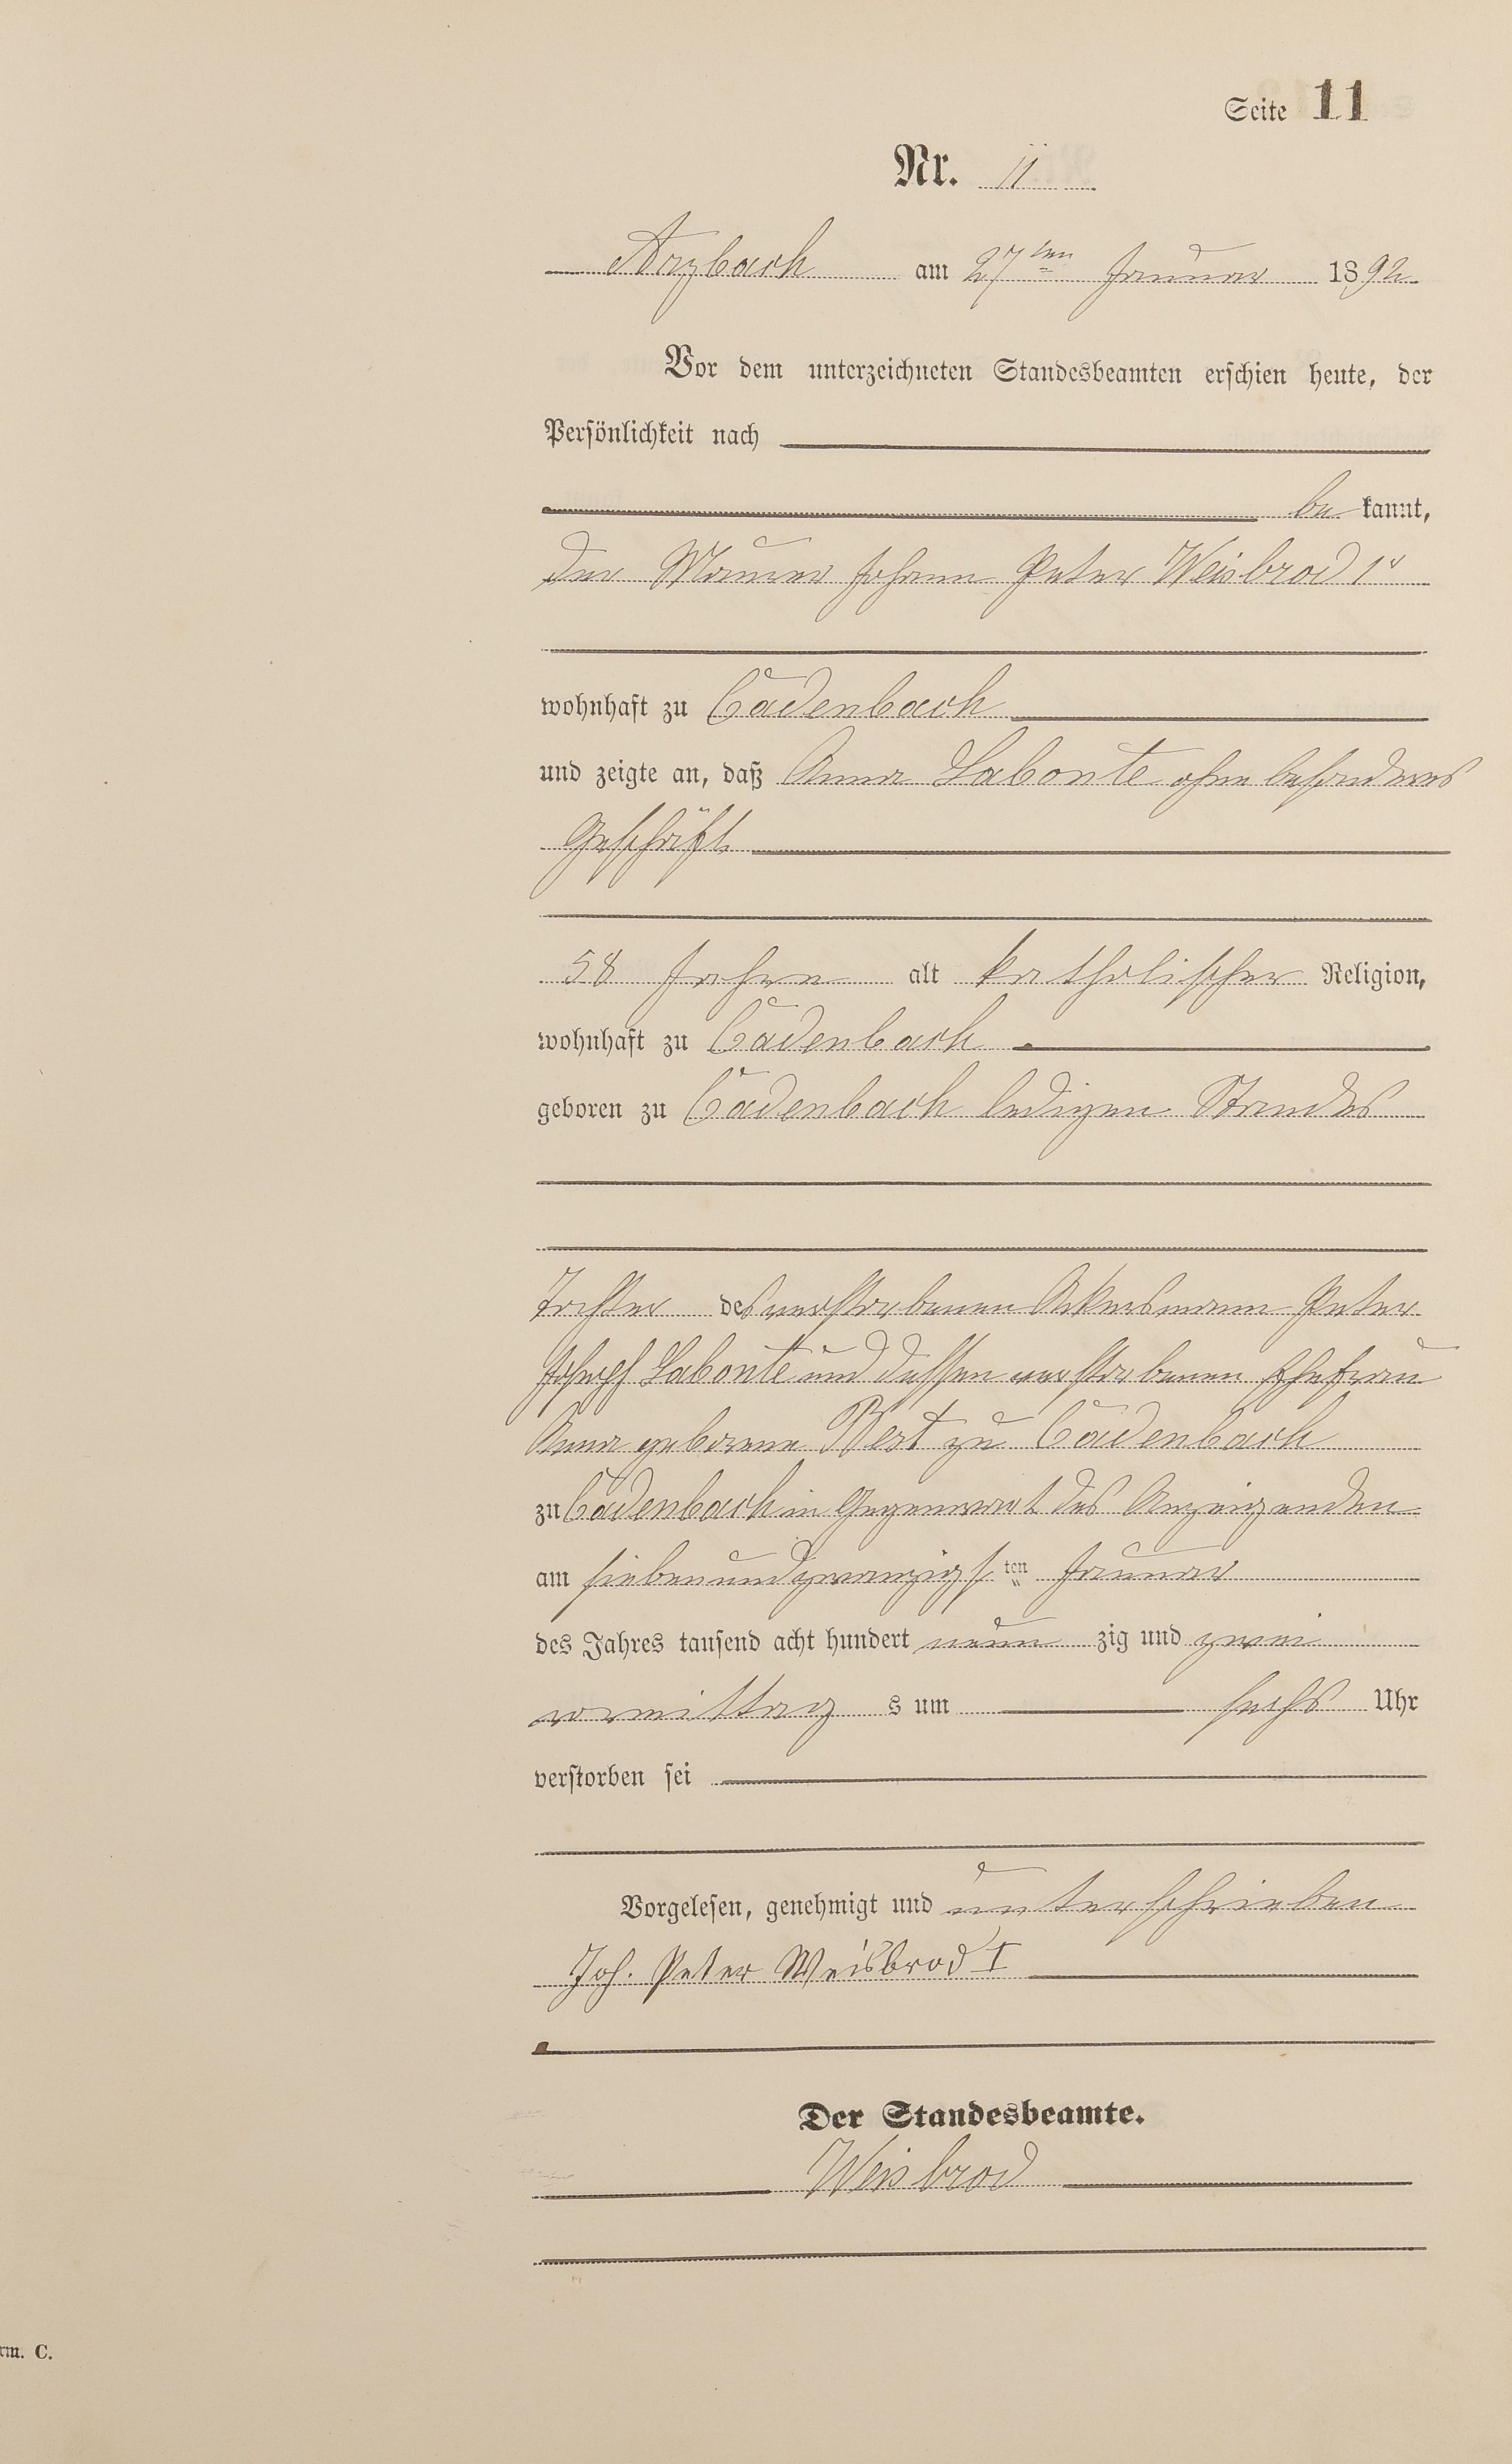 Seite 11
Nr. 11
Arzbach am 27ten Januar 1892
Vor dem unterzeichneten Standesbeamten erschien heute, der
Persönlichkeit nach
be kannt,
der Maurer Johann Peter Weisbrod 1r
wohnhaft zu Cadenbach
und zeigte an, daß Anna Labonte ohne besonderes
Geschäft
58 Jahre alt katholischer Religion,
wohnhaft zu Cadenbach
geboren zu Cadenbach ledigen Standes
Tochter des verstorbenen Ackersmann Peter
Joseph Labonte und dessen verstorbenen Ehefrau
Anna geborene Best zu Cadenbach
zu Cadenbach in Gegenwart des Anzeigenden
am siebenundzwanzigsten Januar
des Jahres tausend acht hundert neun zig und zwei
vormittag s um sechs Uhr
verstorben sei
Vorgelesen, genehmigt und unterschrieben
Joh. Peter Weisbrod I
Der Standesbeamte.
Weisbrod
rm. C.